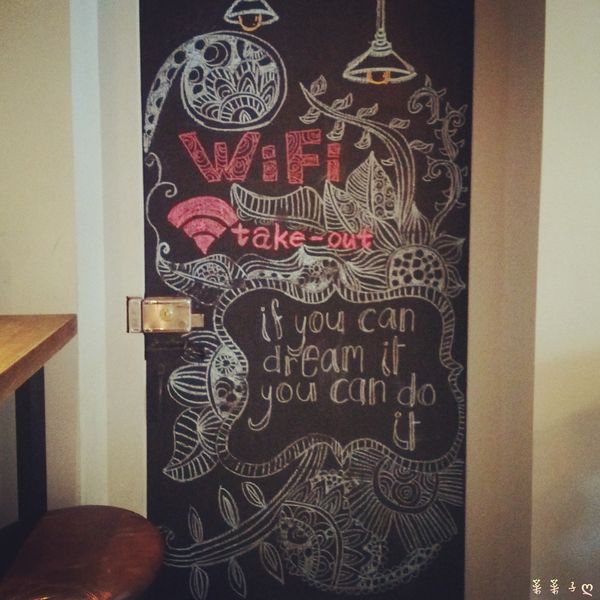 WiFi
take-out
if you can
dream it
you can do
it
菜菜子ღ